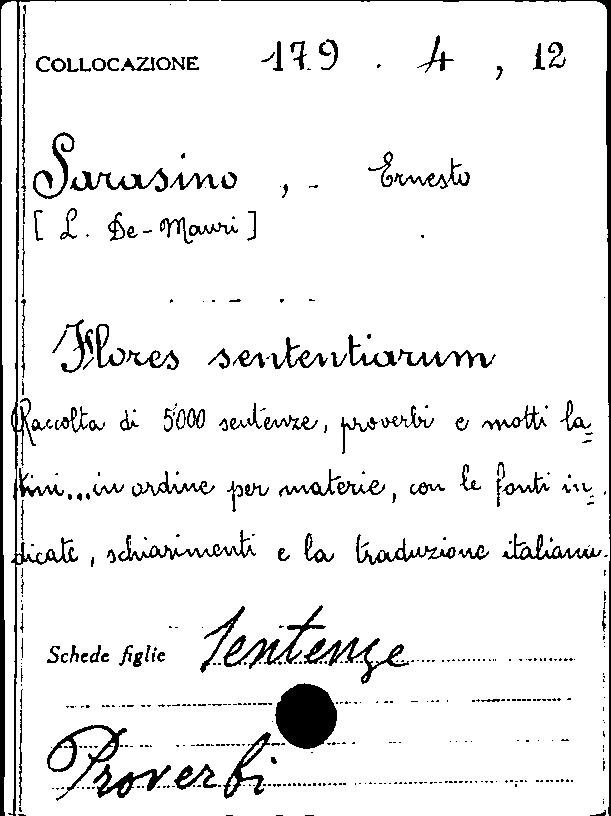 COLLOCAZIONE 179 . 4 , 12
Sarasino , - Ernesto
[ L. De-Mauri ]
Flores sententiarum
Raccolta di 5000 sentenze, proverbi e motti la=
tini...in ordine per materie, con le fonti in=
dicate, schiarimenti e la traduzione italiana.
Schede figlie Sentenze
Proverbi